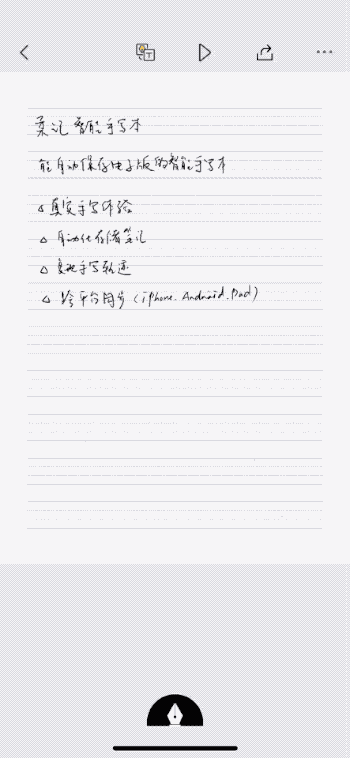 柔记智能手写本
能自动保存电子版的智能手写本
△ 真实手写体验
△ 自动化存储笔记
△ 复现手写轨迹
△ 跨平台同步（iphone. Android. Pad）